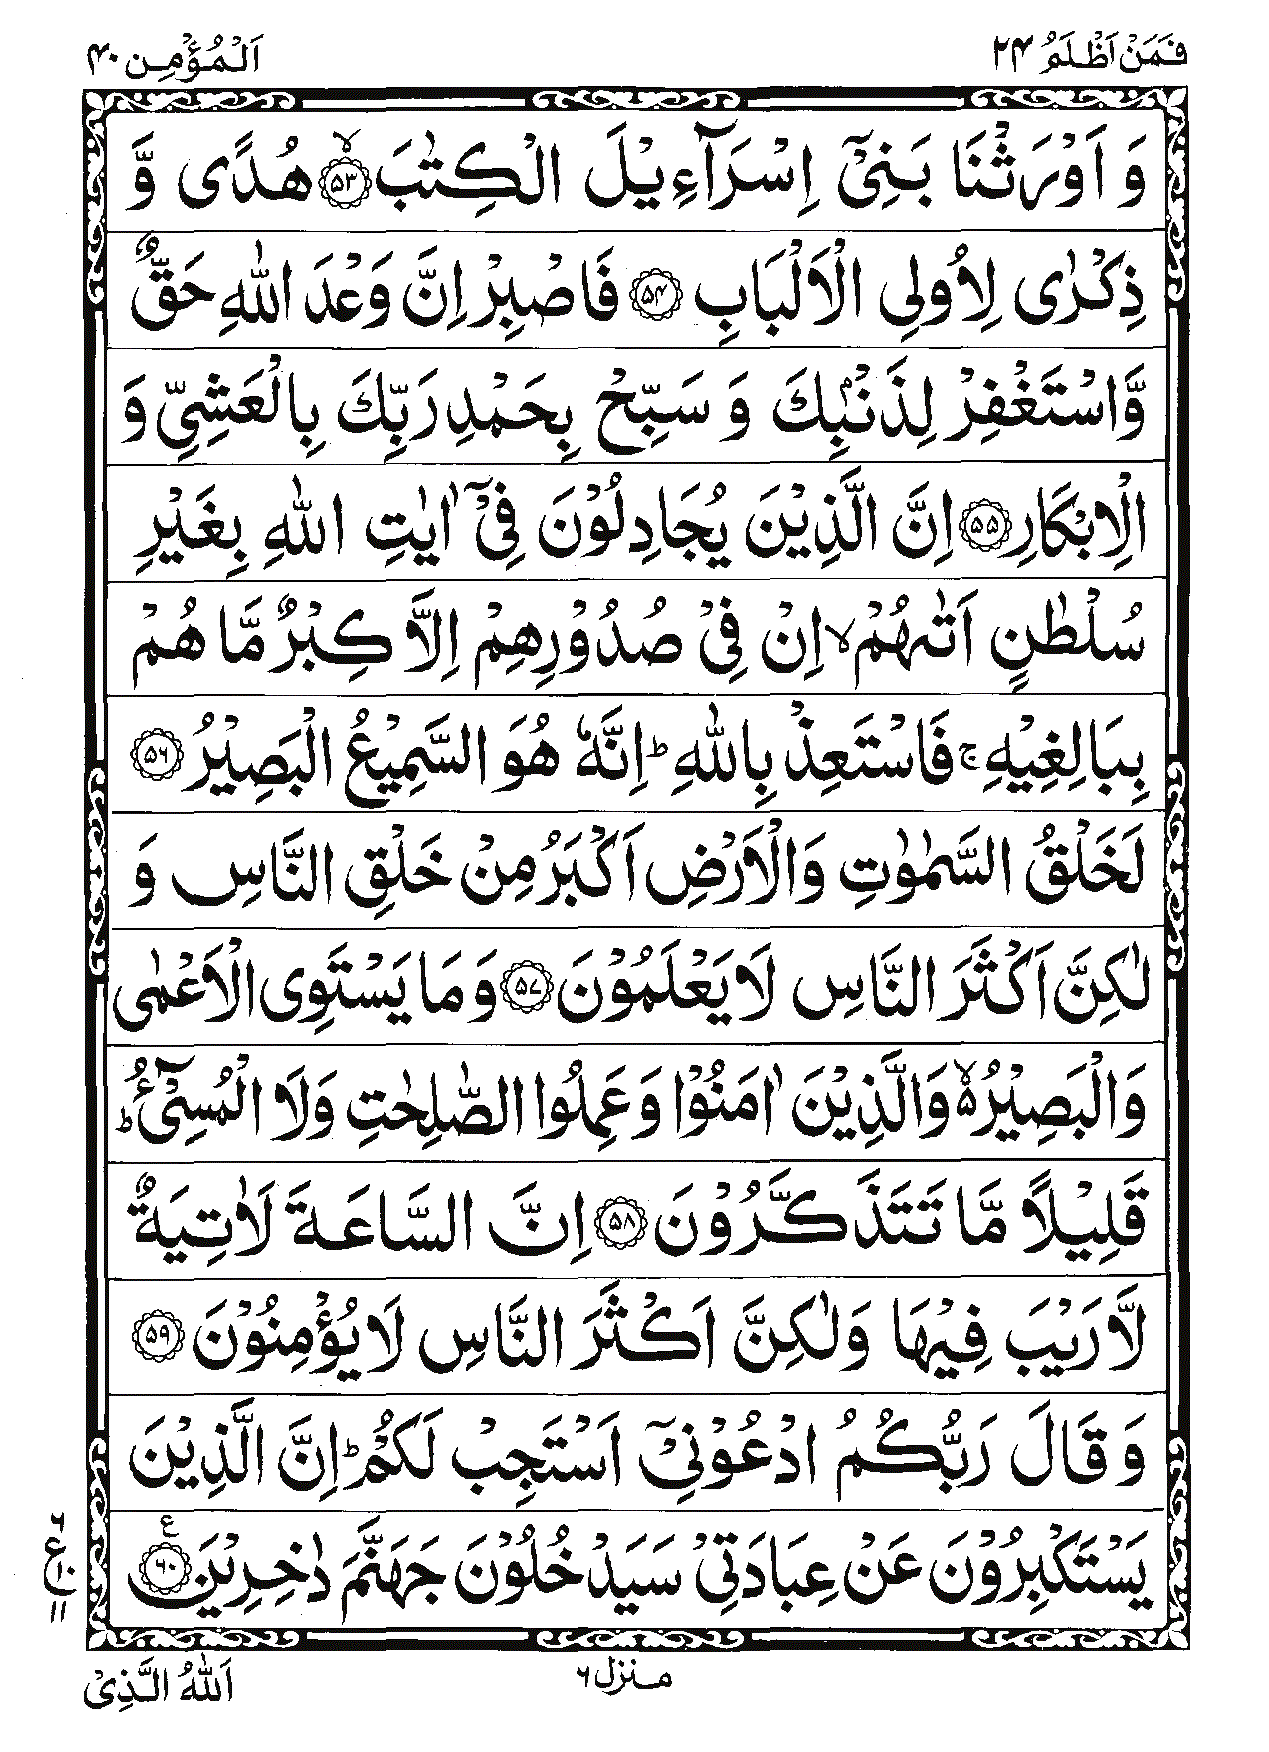 فَمَنْ اَظْلَمُ ۲۴
اَلْمُؤْمِن ۴۰
وَ اَوْرَثْنَا بَنِیْۤ اِسْرَآءِیْلَ الْكِتٰبَ ۙ﴿۵۳﴾ هُدًی وَّ
ذِكْرٰی لِاُولِی الْاَلْبَابِ ﴿۵۴﴾ فَاصْبِرْ اِنَّ وَعْدَ اللّٰهِ حَقٌّ
وَّاسْتَغْفِرْ لِذَنْۢبِكَ وَ سَبِّحْ بِحَمْدِ رَبِّكَ بِالْعَشِیِّ وَ
الْاِبْكَارِ ﴿۵۵﴾ اِنَّ الَّذِیْنَ یُجَادِلُوْنَ فِیْۤ اٰیٰتِ اللّٰهِ بِغَیْرِ
سُلْطٰنٍ اَتٰىهُمْ ۙ اِنْ فِیْ صُدُوْرِهِمْ اِلَّا كِبْرٌ مَّا هُمْ
بِبَالِغِیْهِ ۚ فَاسْتَعِذْ بِاللّٰهِ ؕ اِنَّهٗ هُوَ السَّمِیْعُ الْبَصِیْرُ ﴿۵۶﴾
لَخَلْقُ السَّمٰوٰتِ وَالْاَرْضِ اَكْبَرُ مِنْ خَلْقِ النَّاسِ وَ
لٰكِنَّ اَكْثَرَ النَّاسِ لَا یَعْلَمُوْنَ ﴿۵۷﴾ وَ مَا یَسْتَوِی الْاَعْمٰی
وَالْبَصِیْرُ ۙ۬ وَالَّذِیْنَ اٰمَنُوْا وَ عَمِلُوا الصّٰلِحٰتِ وَلَا الْمُسِیْٓءُ ؕ
قَلِیْلًا مَّا تَتَذَكَّرُوْنَ ﴿۵۸﴾ اِنَّ السَّاعَةَ لَاٰتِیَةٌ
لَّا رَیْبَ فِیْهَا وَلٰكِنَّ اَكْثَرَ النَّاسِ لَا یُؤْمِنُوْنَ ﴿۵۹﴾
وَ قَالَ رَبُّكُمُ ادْعُوْنِیْۤ اَسْتَجِبْ لَكُمْ ؕ اِنَّ الَّذِیْنَ
یَسْتَكْبِرُوْنَ عَنْ عِبَادَتِیْ سَیَدْخُلُوْنَ جَهَنَّمَ دٰخِرِیْنَ ﴿۶۰﴾ ع
۶
ع ۱۰
۱۱
منزل ۶
اَللّٰهُ الَّذِیْ